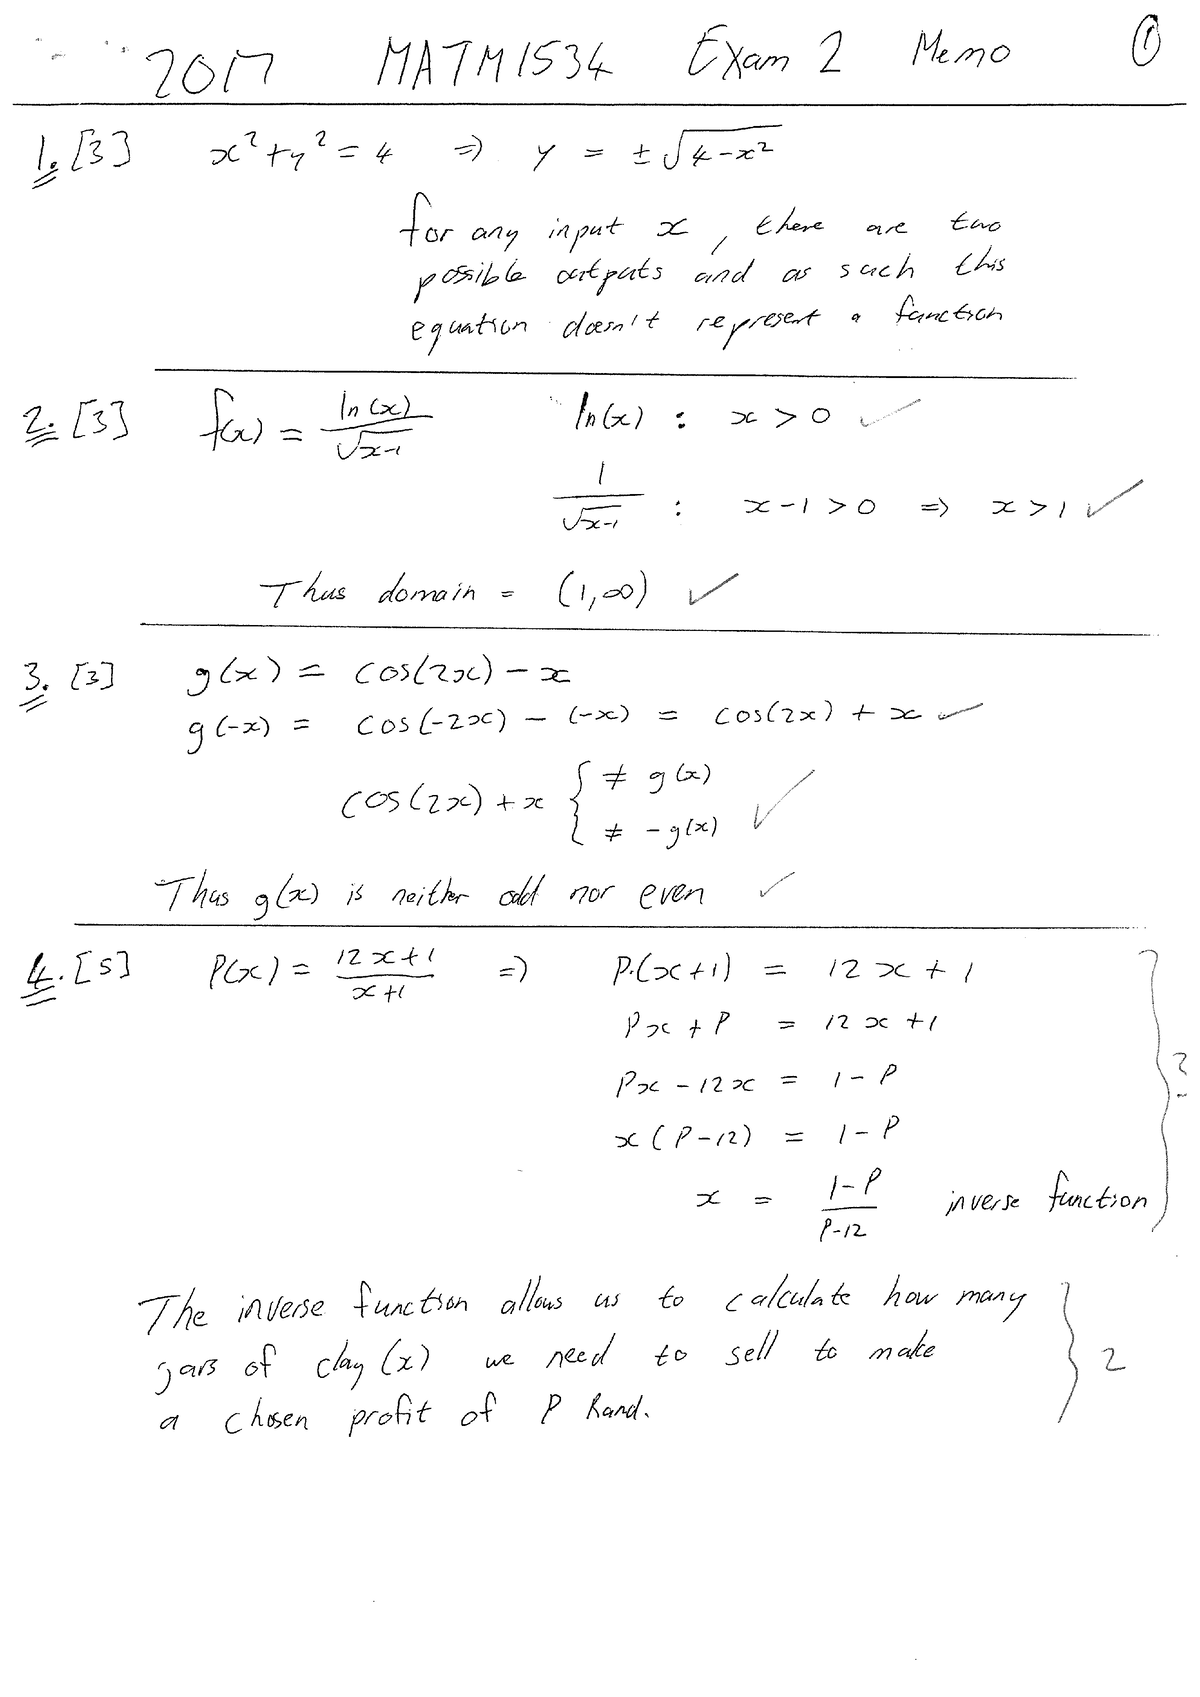 2017 MATM1534 Exam 2 Memo ①
1. [3] x² + y² = 4 ⇒ y = ±√(4-x²)
for any input x, there are two
possible outputs and as such this
equation doesn't represent a function
2. [3] f(x) = ln(x)/√(x-1) ln(x) : x > 0 ✓
1/√(x-1) : x-1 > 0 ⇒ x > 1 ✓
Thus domain = (1,∞) ✓
3. [3] g(x) = cos(2x) - x
g(-x) = cos(-2x) - (-x) = cos(2x) + x ✓
cos(2x) + x { ≠ g(x)
≠ -g(x) ✓
Thus g(x) is neither odd nor even ✓
4. [5] P(x) = (12x+1)/(x+1) ⇒ P.(x+1) = 12x + 1
Px + P = 12x + 1
Px - 12x = 1 - P
x(P-12) = 1 - P
x = (1-P)/(P-12) inverse function
The inverse function allows us to calculate how many
jars of clay (x) we need to sell to make
a chosen profit of P Rand. } 2